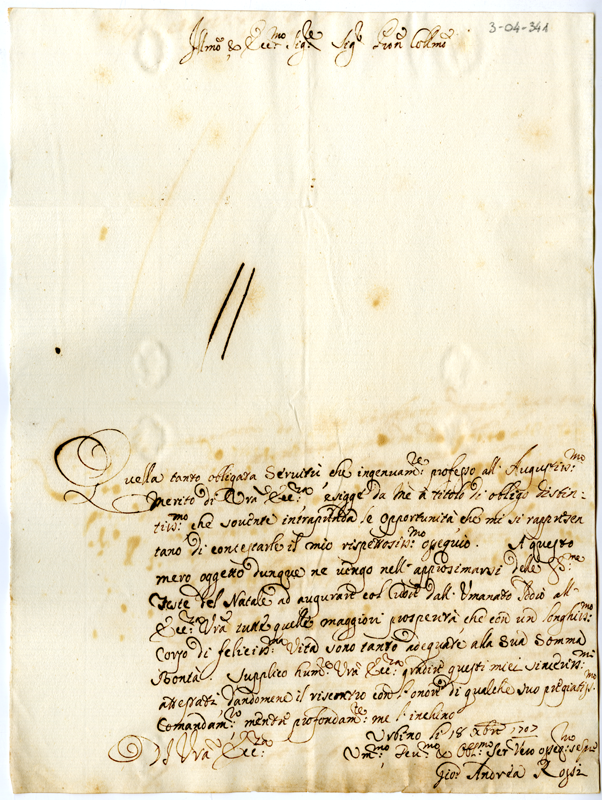 3-04-341
Illmo & Ecc:mo Sigre Sigr Pron Collmo
Quella tanto obligata servitù che ingenuam:te professo all' Augustiss:mo
Merito di Vra Ecc:za esigge da mè à titolo di obligo distin-
tiss:mo che sovente intraprenda le opportunità che mi si rappresen
tano di contestarle il mio rispettosiss:mo ossequio. A questo
mero oggetto dunque ne vengo nell' approssimarsi delle S:me
Feste del Natale ad augurare col dall' Umanato all'
Ecc:za Vra tutte quelle maggiori prosperità che con un longhiss:mo
Corso di feliciss:ma Vita sono tanto adequate alla Sua Somma
Bontà. Supplico hum:te Vra Ecc:za gradire questi miei sinceriss:mi
attestati dandomene il riscontro con l' onore di qualche suo pregiatiss:mo
Comandam:to mentre profondam:te me l' inchino
Urbino li 18 Xbre 1707
Di Vra Ecc:za
Um:mo Dev:mo & Obl:mo Ser Vero osseq:mo
Gio: Andrea Rossi